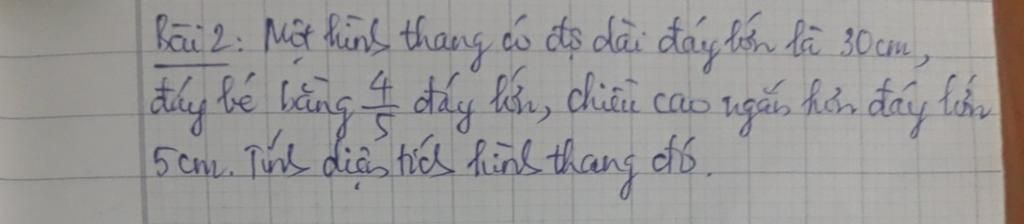 Bài 2: Một hình thang có độ dài đáy lớn là 30cm,
đáy bé bằng 4/5 đáy lớn, chiều cao ngắn hơn đáy lớn
5cm. Tính diện tích hình thang đó.